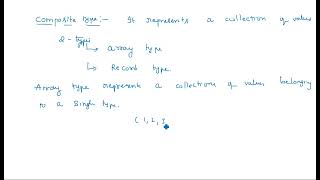 Composite type:- It represents a collection of values
2-types
↳ array type
↳ Record type.
Array type represent a collection of value belonging
to a single type.
( 1, 2, 3